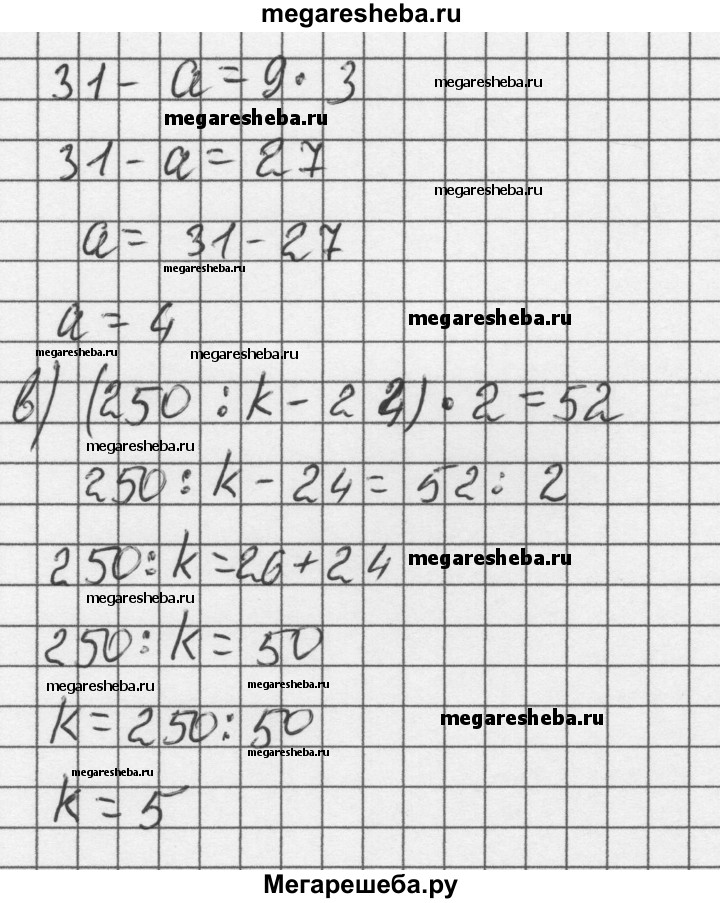 megaresheba.ru
31 - a = 9 · 3
megaresheba.ru
megaresheba.ru
31 - a = 27
megaresheba.ru
a = 31 - 27
megaresheba.ru
a = 4
megaresheba.ru
megaresheba.ru megaresheba.ru
в) (250 : k - 24) · 2 = 52
megaresheba.ru
250 : k - 24 = 52 : 2
250 : k = 26 + 24
megaresheba.ru
megaresheba.ru
250 : k = 50
megaresheba.ru megaresheba.ru
k = 250 : 50
megaresheba.ru
megaresheba.ru
megaresheba.ru
k = 5
Мегарешеба.ру